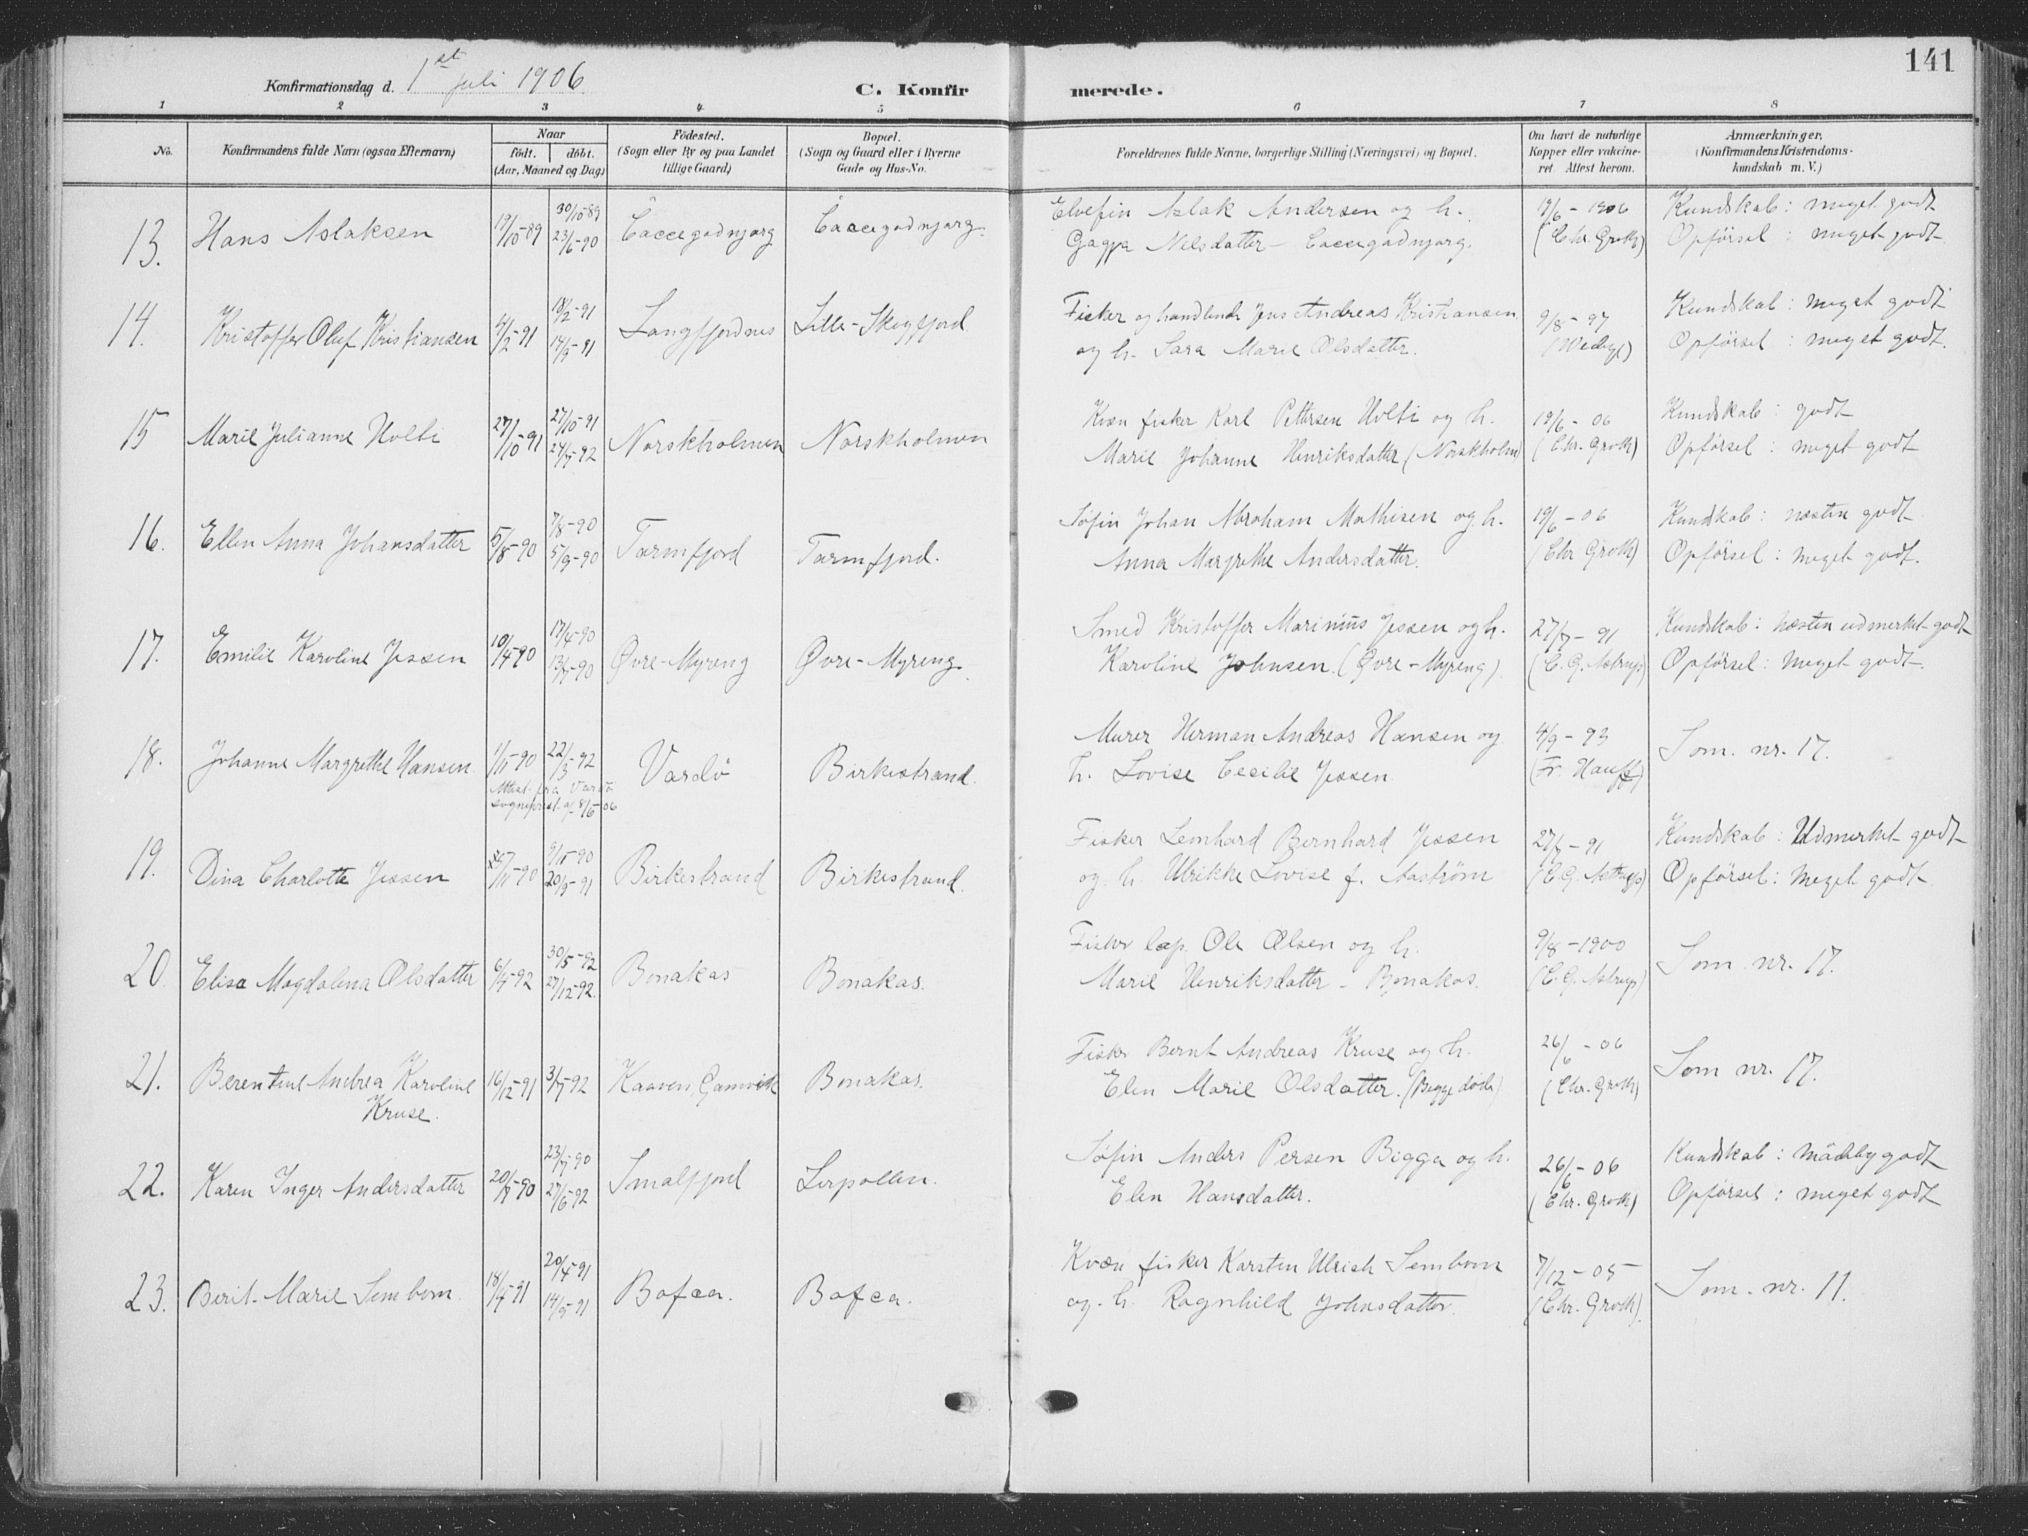 141
Konfirmationsdag d. 1st juli 1906.
C. Konfirmerede.
1 2 3 4 5 6 7 8
No.
Konfirmandens fulde Navn (ogsaa Efternavn)
Naar
födt. döbt.
(Aar, Maaned og Dag)
Födested.
(Sogn eller By og paa Landet
tillige Gaard)
Bopæl.
(Sogn og Gaard eller i Byerne
Gade og Hus-No.
Forældrenes fulde Navne, borgerlige Stilling (Næringsvei) og Bopæl.
Om havt de naturlige
Kopper eller vakcine-
ret. Attest herom.
Anmærkninger.
(Konfirmandens Kristendoms-
kundskab m. V.)
13. Hans Aslaksen 19/10-89 30/10-89 23/6-90 Caccegadnjarg Caccegadnjarg.
Elvefin Aslak Andersen og h.
Gagga Nilsdatter - Caccegadnjarg.
19/6-1906
(Chr. Groth)
Kundskab: meget godt
Opførsel: meget godt
14. Kristoffer Oluf Kristiansen 4/2-91 18/2-91 14/9-91 Langfjordnes Lille-Skogfjord
Fisker og handlende Jens Andreas Kristiansen
og h. Sara Marie Olsdatter.
9/8-97
Kundskab: meget godt
Opførsel: meget godt.
15 Marie Julianne Uolbi 27/10-91 27/10-91 24/7-92 Norskholmen Norskholmen
Kvæn fisker Karl Pettersen Uolbi og h.
Marie Johanne Henriksdatter (Norskholm)
19/6-06
(Chr. Groth)
Kundskab: godt
Opførsel: meget godt
16. Ellen Anna Johansdatter 5/8-90 7/8-90 5/9-90 Tarmfjord Tarmfjord.
Søfin Johan Abraham Mathisen og h.
Anna Margrethe Andersdatter.
19/6-06
(Chr Groth)
Kundskab: næsten godt
Opførsel: meget godt.
17. Emilie Karoline Jessen 10/4-90 17/4-90 13/7-90 Øvre-Myreng Øvre-Myreng.
Smed Kristoffer Marinius Jessen og h.
Karoline Johnsen. (Øvre-Myreng)
27/7-91
(C. G. Astrup)
Kundskab: næsten udmerket godt
Opførsel: meget godt.
18. Johanne Margrethe Hansen 1/11-90 22/3-92 Vardö Birkestrand.
Attest fra Vardö
sogneprest af 8/5-06
Murer Herman Andreas Hansen og
h. Lovise Cecilie Jessen
4/9-93
(Fr. Hauff)
Som. nr. 17.
19. Dina Charlotte Jessen 9/11-90 20/9-91 Birkestrand Birkestrand.
Fisker Lenhard Bernhard Jessen
og h. Ulrikke Lovise f. Aastrøm
27/7-91
(C. G. Astrup)
Kundskab: Udmerket godt
Opførsel: Meget godt
20. Elisa Magdalena Olsdatter 6/4-92 30/5-92 27/12-92. Bonakas Bonakas.
Fisker lap. Ole Olsen og h.
Marie Henriksdatter - Bonakas.
9/8-1900
(C. G. Astrup)
Som nr. 17.
21. Berentine Andrea Karoline 16/12-91 3/7-92 Kaaven, Gamvik Bonakas.
Kruse.
Fisker Bernt Andreas Kruse og h.
Elen Marie Olsdatter. (Begge døde)
26/6-06
(Chr. Groth)
Som nr. 17.
22. Karen Inger Andersdatter 20/7-90 23/7-90 27/6-92 Smalfjord Lerpollen.
Søfin Anders Persen Bigga og h.
Elen Hansdatter.
26/6-06
(Chr. Groth)
Kundskab: mådelig godt
Opførsel: meget godt
23. Berit-Marie Sembom. 18/4-91 20/4-91 14/9-91 Bofca. Bofca.
Kvæn fisker Karsten Ulrich Sembom
og. h. Ragnhild Johnsdatter.
7/12-05
(Chr. Groth).
Som. nr. 11.